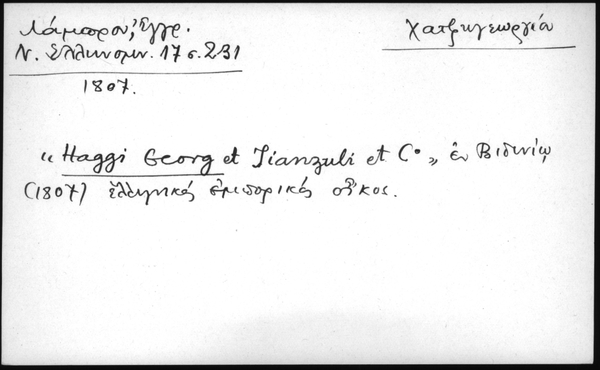 Λάμπρου, Ἔγγρ.
Ν. Ἑλληνομν. 17 σ. 231
1807.
Χατζηγεωργίου
"Haggi Georg et Tianzuli et Cº„ ἐν Βιδινίῳ
(1807) ἑλληνικός ἐμπορικός οἶκος.